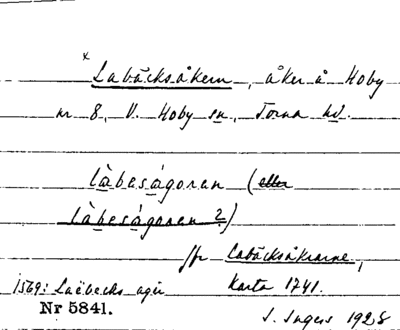 x Labäcksåkern, åker å Hoby
nr 8, V. Hoby sn, Torna hd.
làbesågoran (eller
làbesågoranen ?)
fr Labäcksåkrarne,
1569: Laebecks ager Karta 1741.
Nr 5841.
S. Ingers 1928